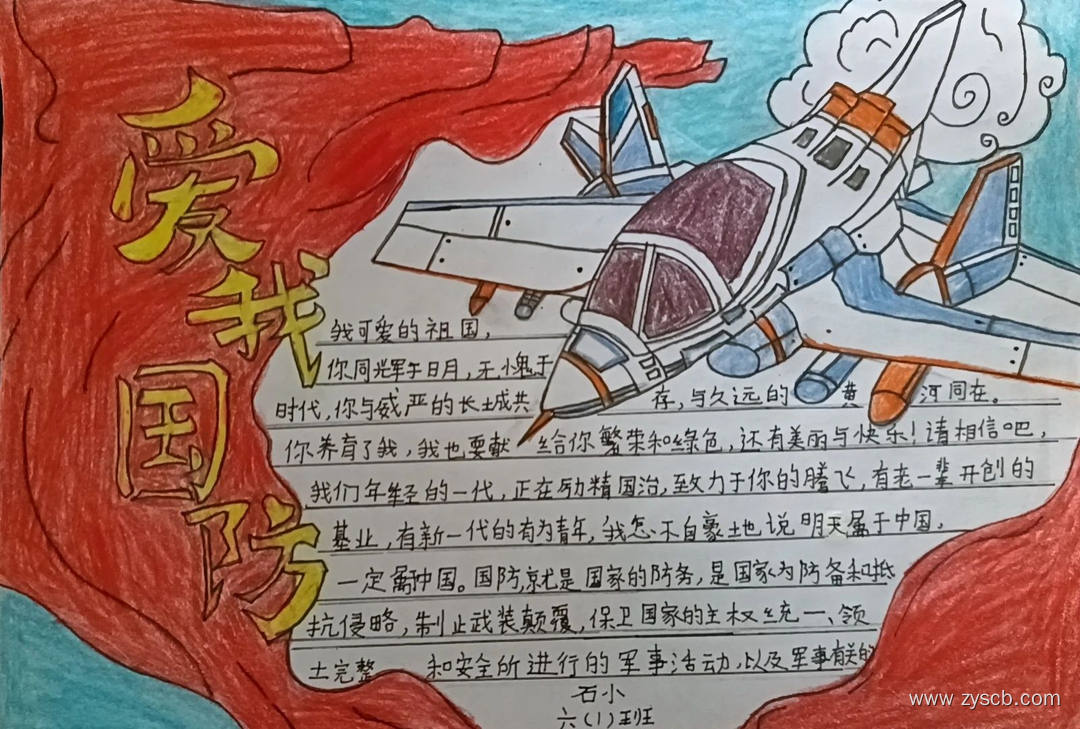 爱我国防
我可爱的祖国，
你同光军于日月，无愧于
时代，你与威严的长城共存，与久远的黄河同在。
你养育了我，我也要献给你繁荣和绿色，还有美丽与快乐！请相信吧，
我们年轻的一代，正在励精国治，致力于你的腾飞，有老一辈开创的
基业，有新一代的有为青年，我怎不自豪土地说明天属于中国，
一定属中国。国防，就是国家的防务，是国家为防备和抵
抗侵略，制止武装颠覆，保卫国家的主权统一、领
土完整 和安全所进行的军事活动，以及军事有关的
石小
六(1)班
www.zyscb.com